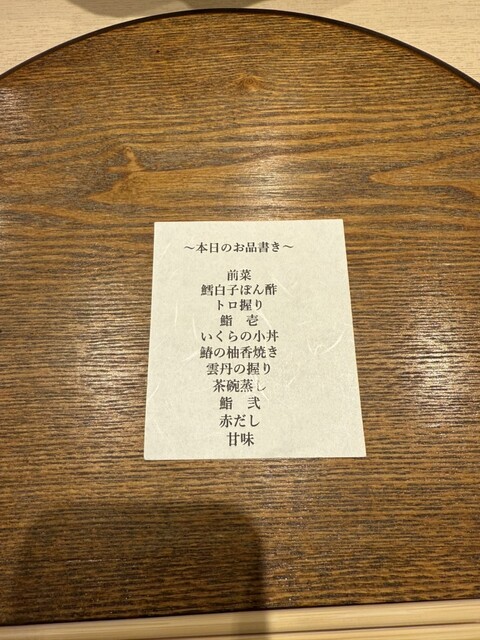 ～本日のお品書き～
前菜
鱈白子ぽん酢
トロ握り
鮨 壱
いくらの小丼
鰆の柚香焼き
雲丹の握り
茶碗蒸し
鮨 弐
赤だし
甘味